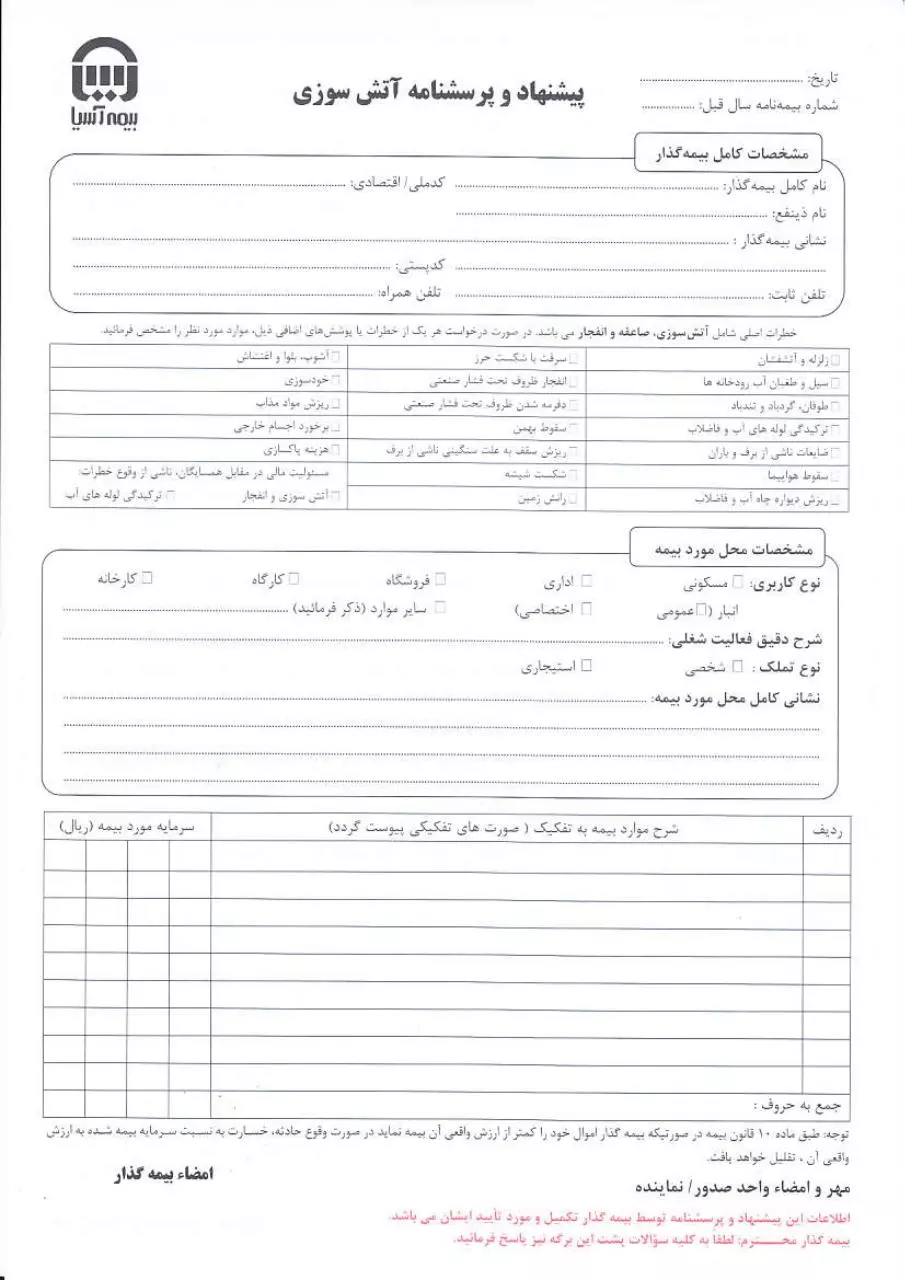 بیمه آسیا
پیشنهاد و پرسشنامه آتش سوزی
تاریخ: ..........
شماره بیمه‌نامه سال قبل: ..........
مشخصات کامل بیمه‌گذار
نام کامل بیمه‌گذار: .......... کدملی/ اقتصادی: ..........
نام ذینفع: ..........
نشانی بیمه‌گذار : ..........
.......... کدپستی: ..........
تلفن ثابت: .......... تلفن همراه: ..........
خطرات اصلی شامل آتش‌سوزی، صاعقه و انفجار می باشد. در صورت درخواست هر یک از خطرات یا پوشش‌های اضافی ذیل، موارد مورد نظر را مشخص فرمائید.
□ زلزله و آتشفشان □ سرقت با شکست حرز □ آشوب، بلوا و اغتشاش
□ سیل و طغیان آب رودخانه ها □ انفجار ظروف تحت فشار صنعتی □ خودسوزی
□ طوفان، گردباد و تندباد □ دفرمه شدن ظروف تحت فشار صنعتی □ ریزش مواد مذاب
□ ترکیدگی لوله های آب و فاضلاب □ سقوط بهمن □ برخورد اجسام خارجی
□ ضایعات ناشی از برف و باران □ ریزش سقف به علت سنگینی ناشی از برف □ هزینه پاکسازی
□ سقوط هواپیما □ شکست شیشه مسئولیت مالی در مقابل همسایگان، ناشی از وقوع خطرات:
□ ریزش دیواره چاه آب و فاضلاب □ رانش زمین □ آتش سوزی و انفجار □ ترکیدگی لوله های آب
مشخصات محل مورد بیمه
نوع کاربری: □ مسکونی □ اداری □ فروشگاه □ کارگاه □ کارخانه
انبار (□ عمومی □ اختصاصی) □ سایر موارد (ذکر فرمائید) ..........
شرح دقیق فعالیت شغلی: ..........
نوع تملک : □ شخصی □ استیجاری
نشانی کامل محل مورد بیمه: ..........
ردیف شرح موارد بیمه به تفکیک ( صورت های تفکیکی پیوست گردد) سرمایه مورد بیمه (ریال)
جمع به حروف :
توجه: طبق ماده ۱۰ قانون بیمه در صورتیکه بیمه گذار اموال خود را کمتر از ارزش واقعی آن بیمه نماید در صورت وقوع حادثه، خسارت به نسبت سرمایه بیمه شده به ارزش
واقعی آن ، تقلیل خواهد یافت.
مهر و امضاء واحد صدور/ نماینده امضاء بیمه گذار
اطلاعات این پیشنهاد و پرسشنامه توسط بیمه گذار تکمیل و مورد تأیید ایشان می باشد.
بیمه گذار محترم: لطفا به کلیه سؤالات پشت این برگه نیز پاسخ فرمائید.